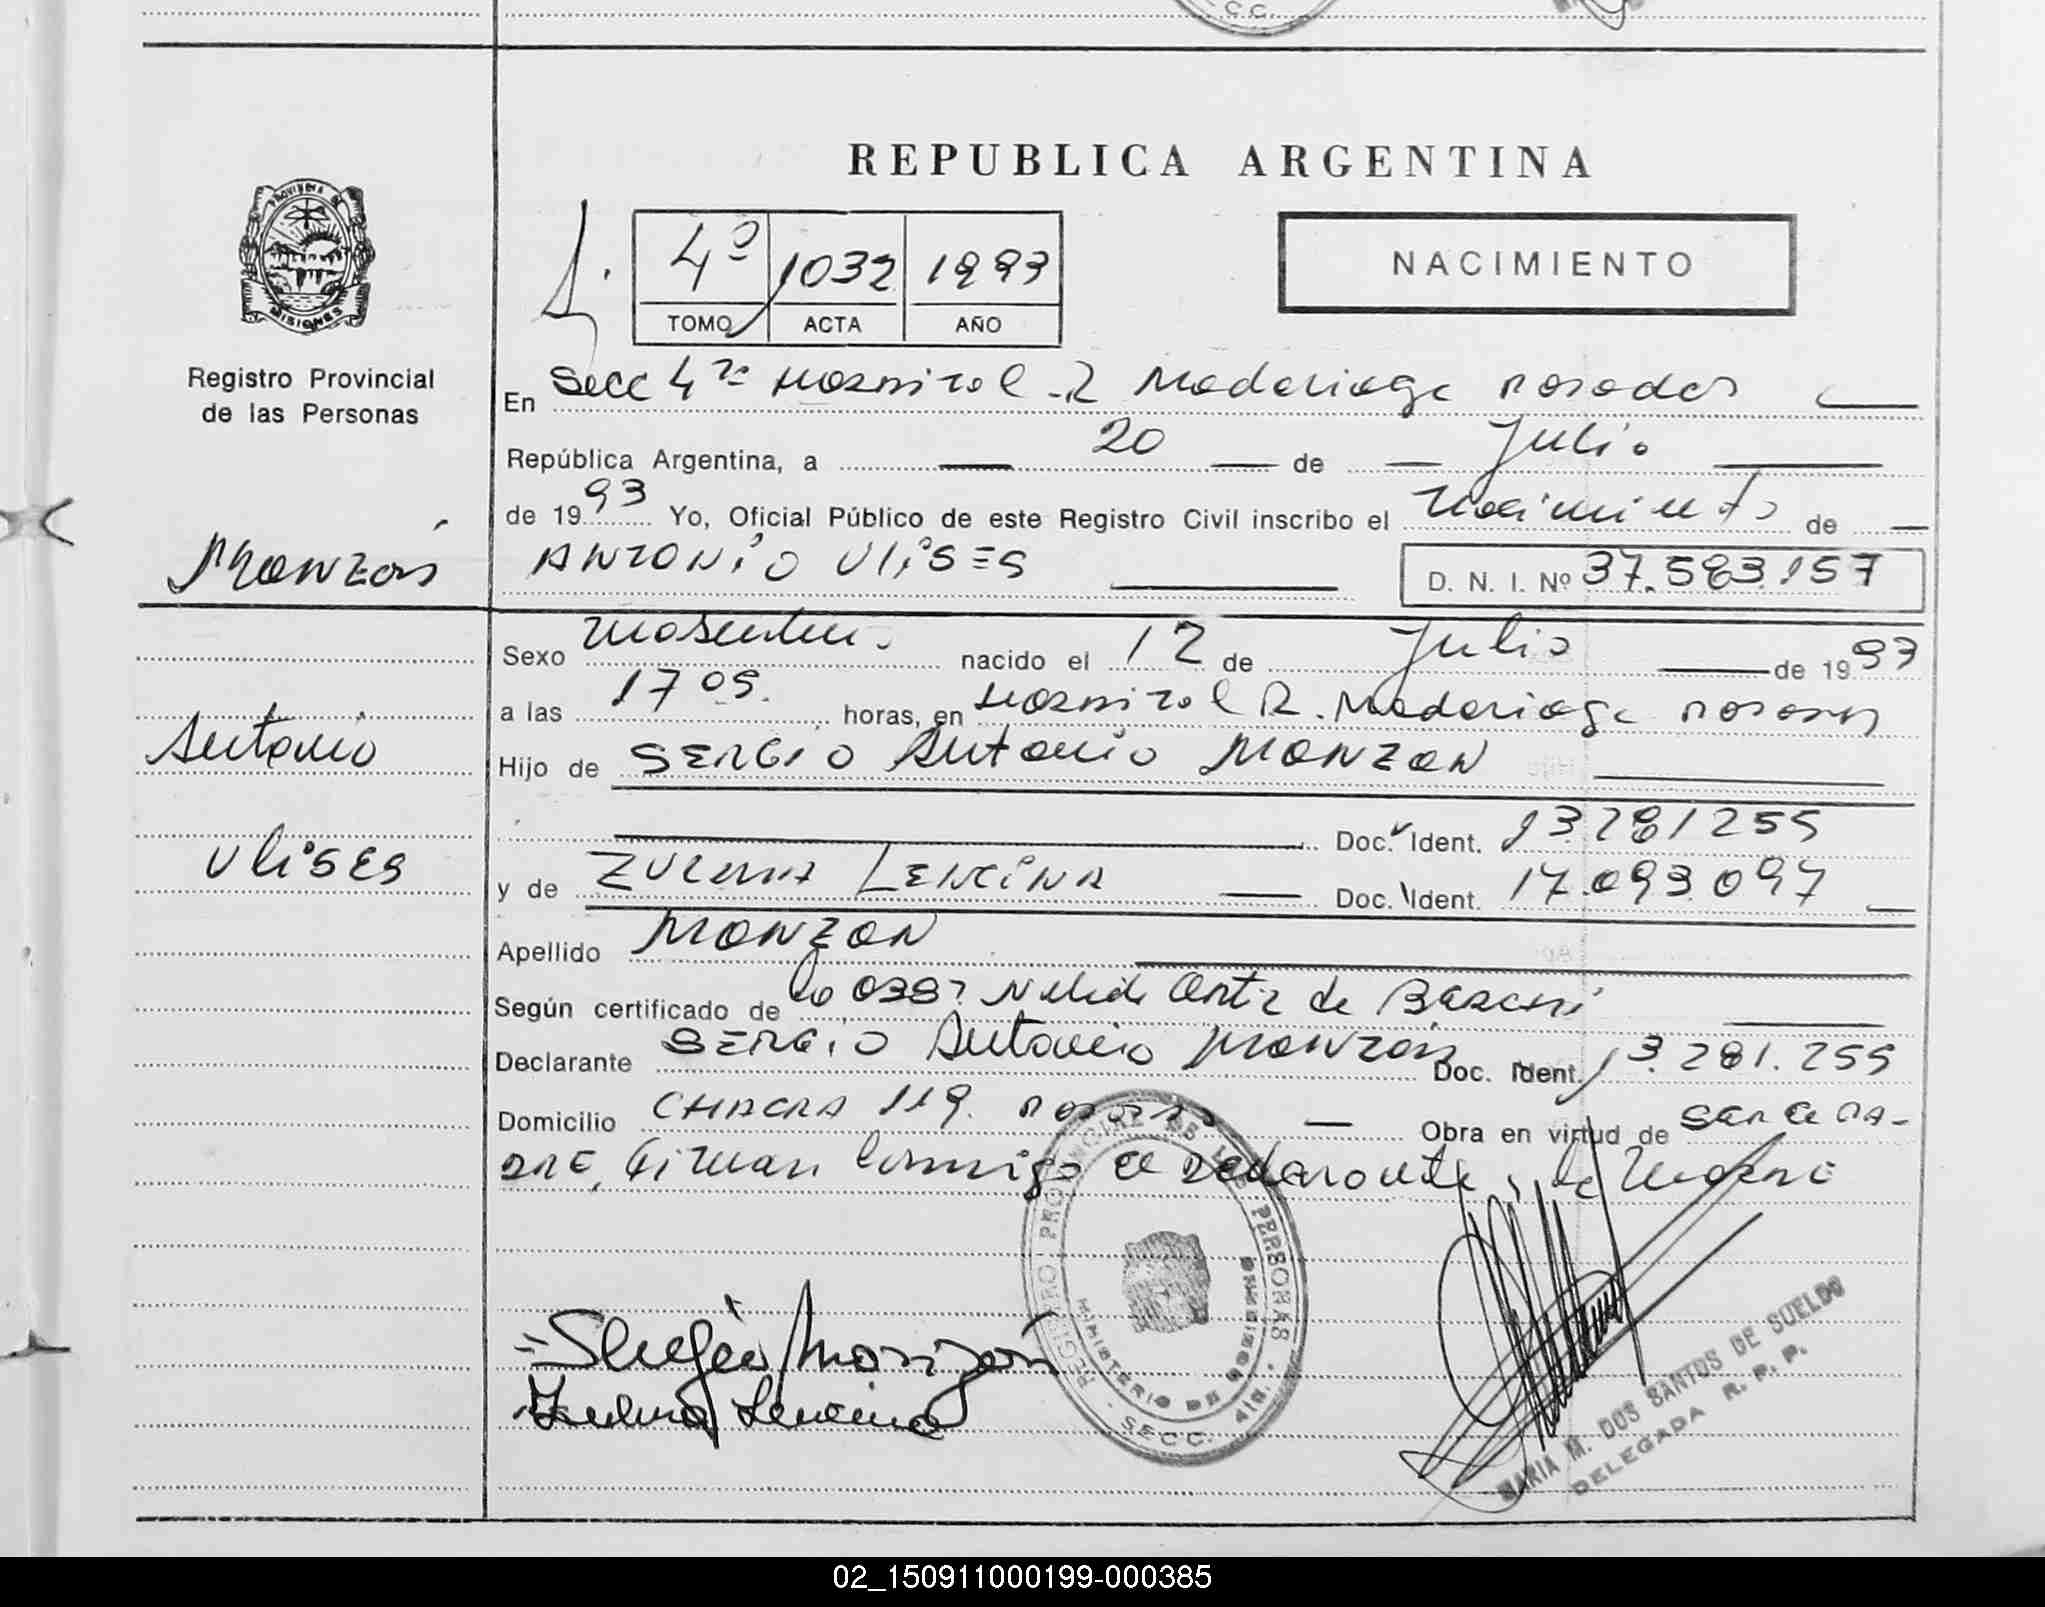 C.C.
REPUBLICA ARGENTINA
PROVINCIA DE
MISIONES
4º 1032 1993
TOMO ACTA AÑO
NACIMIENTO
Registro Provincial
de las Personas
En Secc 4ta Hospital R Madariaga Posadas
República Argentina, a 20 de Julio
de 1993 Yo, Oficial Público de este Registro Civil inscribo el Nacimiento de
Monzón
ANTONIO ULISES D. N. I. Nº 37.583.157
Sexo Masculino nacido el 12 de Julio de 1993
a las 17 05. horas, en Hospital R. Madariaga Posadas
Antonio
Hijo de SERGIO Antonio MONZON
Doc. Ident. 13.281255
Ulises
y de ZULMA LENCINA Doc. Ident. 17.093.097
Apellido MONZON
Según certificado de Ortiz de
Declarante SERGIO Antonio Monzón Doc. Ident. 13.281.255
Domicilio CHACRA 119. Posadas Obra en virtud de SER EL PA-
DRE, Firman conmigo el declarante y la Madre
Sergio Monzón
Zulma Lencina
REGISTRO PROVINCIAL DE LAS PERSONAS
MINISTERIO DE GOBIERNO
SECC. 4ta.
MARIA M. DOS SANTOS DE SUELDO
DELEGADA R. P. P.
02_150911000199-000385